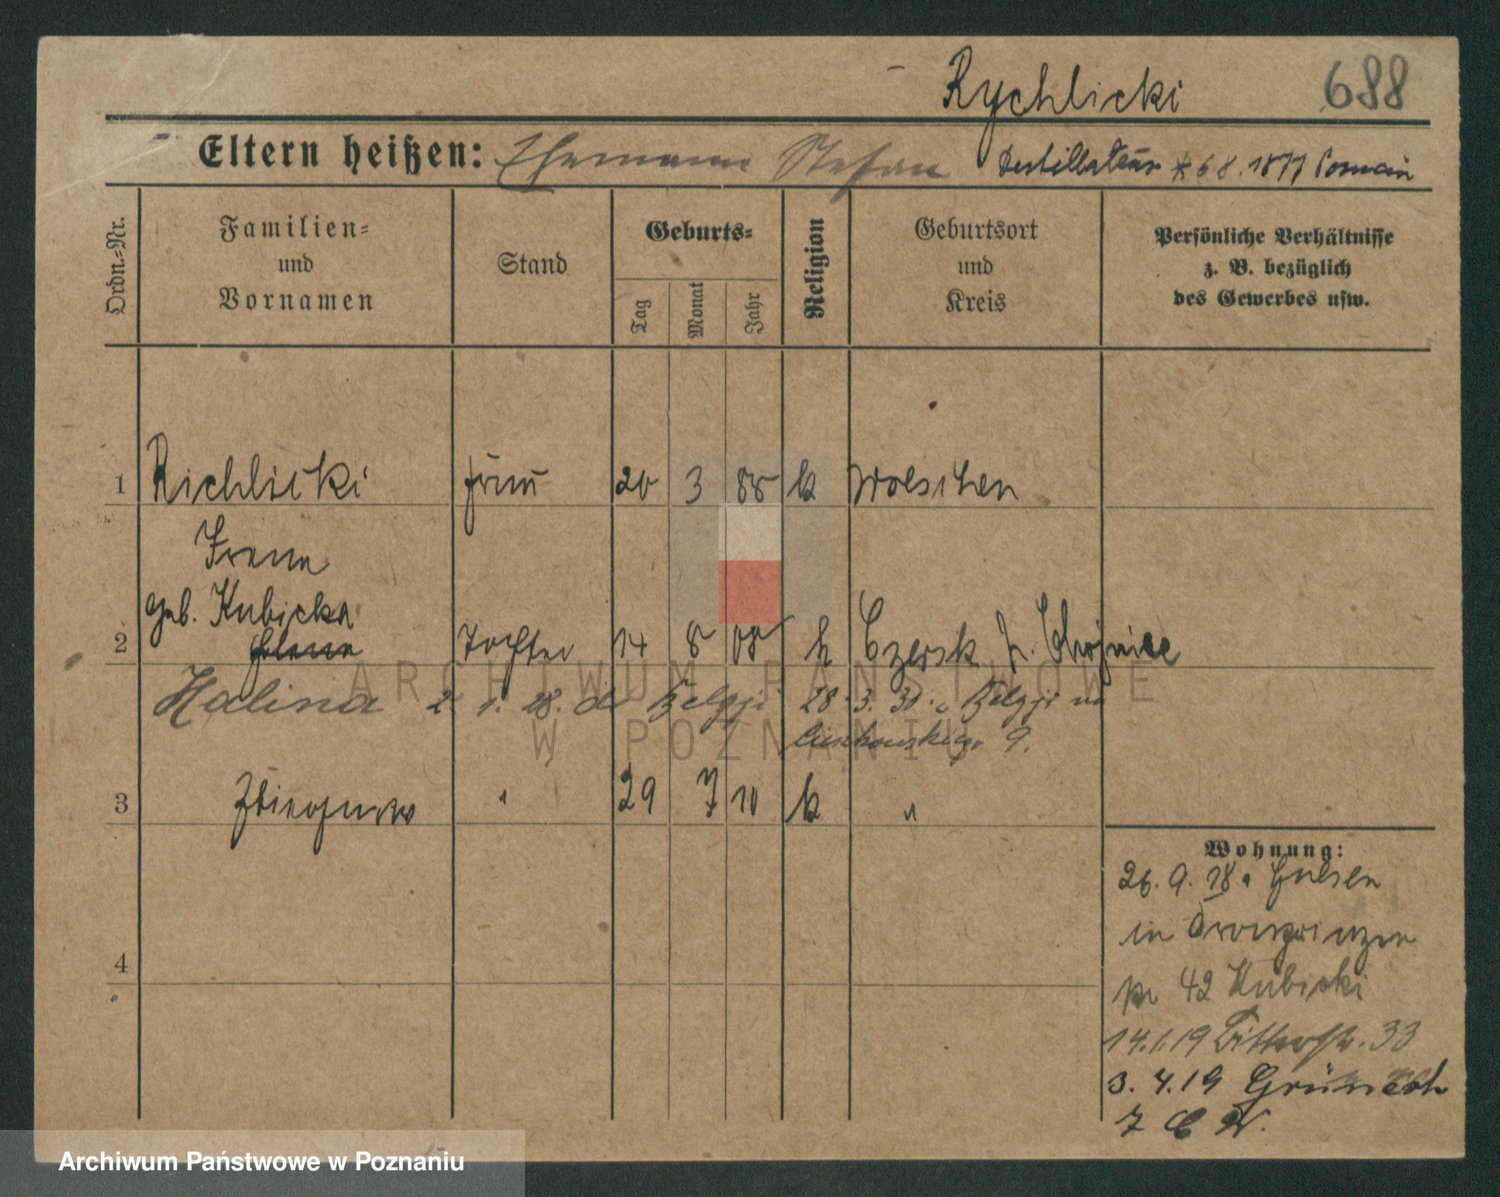 Rychlicki 688
Eltern heißen: Ehemann Stefan Destillateur * 6 8. 1877 Posen
Ordn.-Nr.
Familien-
und
Vornamen
Stand
Geburts-
Tag
Monat
Jahr
Religion
Geburtsort
und
Kreis
Persönliche Verhältnisse
z. B. bezüglich
des Gewerbes usw.
1 Richlicki Frau 20 3 88 k
Irena
geb. Kubicka
2 Tochter 14 8 08 k Czersk
Halina 2 1. 28. do Belgji 28. 3. 31. z Belgji
ARCHIWUM PAŃSTWOWE
W POZNANIU
9.
3 Zbigniew " 29 7 10 k "
Wohnung:
26. 9. 18.
in
42 Kubicki
4
14.1.19 Bitterstr. 33
3. 4. 19
7
Archiwum Państwowe w Poznaniu